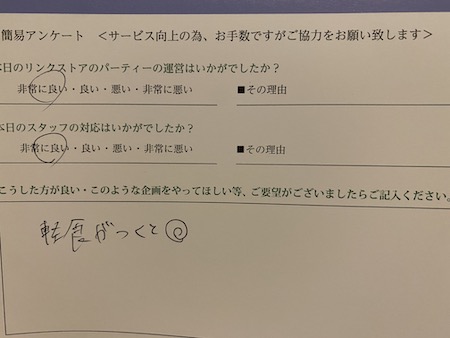 簡易アンケート <サービス向上の為、お手数ですがご協力をお願い致します>
本日のリンクストアのパーティーの運営はいかがでしたか？
非常に良い・良い・悪い・非常に悪い ■その理由
本日のスタッフの対応はいかがでしたか？
非常に良い・良い・悪い・非常に悪い ■その理由
こうした方が良い・このような企画をやってほしい等、ご要望がございましたらご記入ください。
軽食がつくと◎